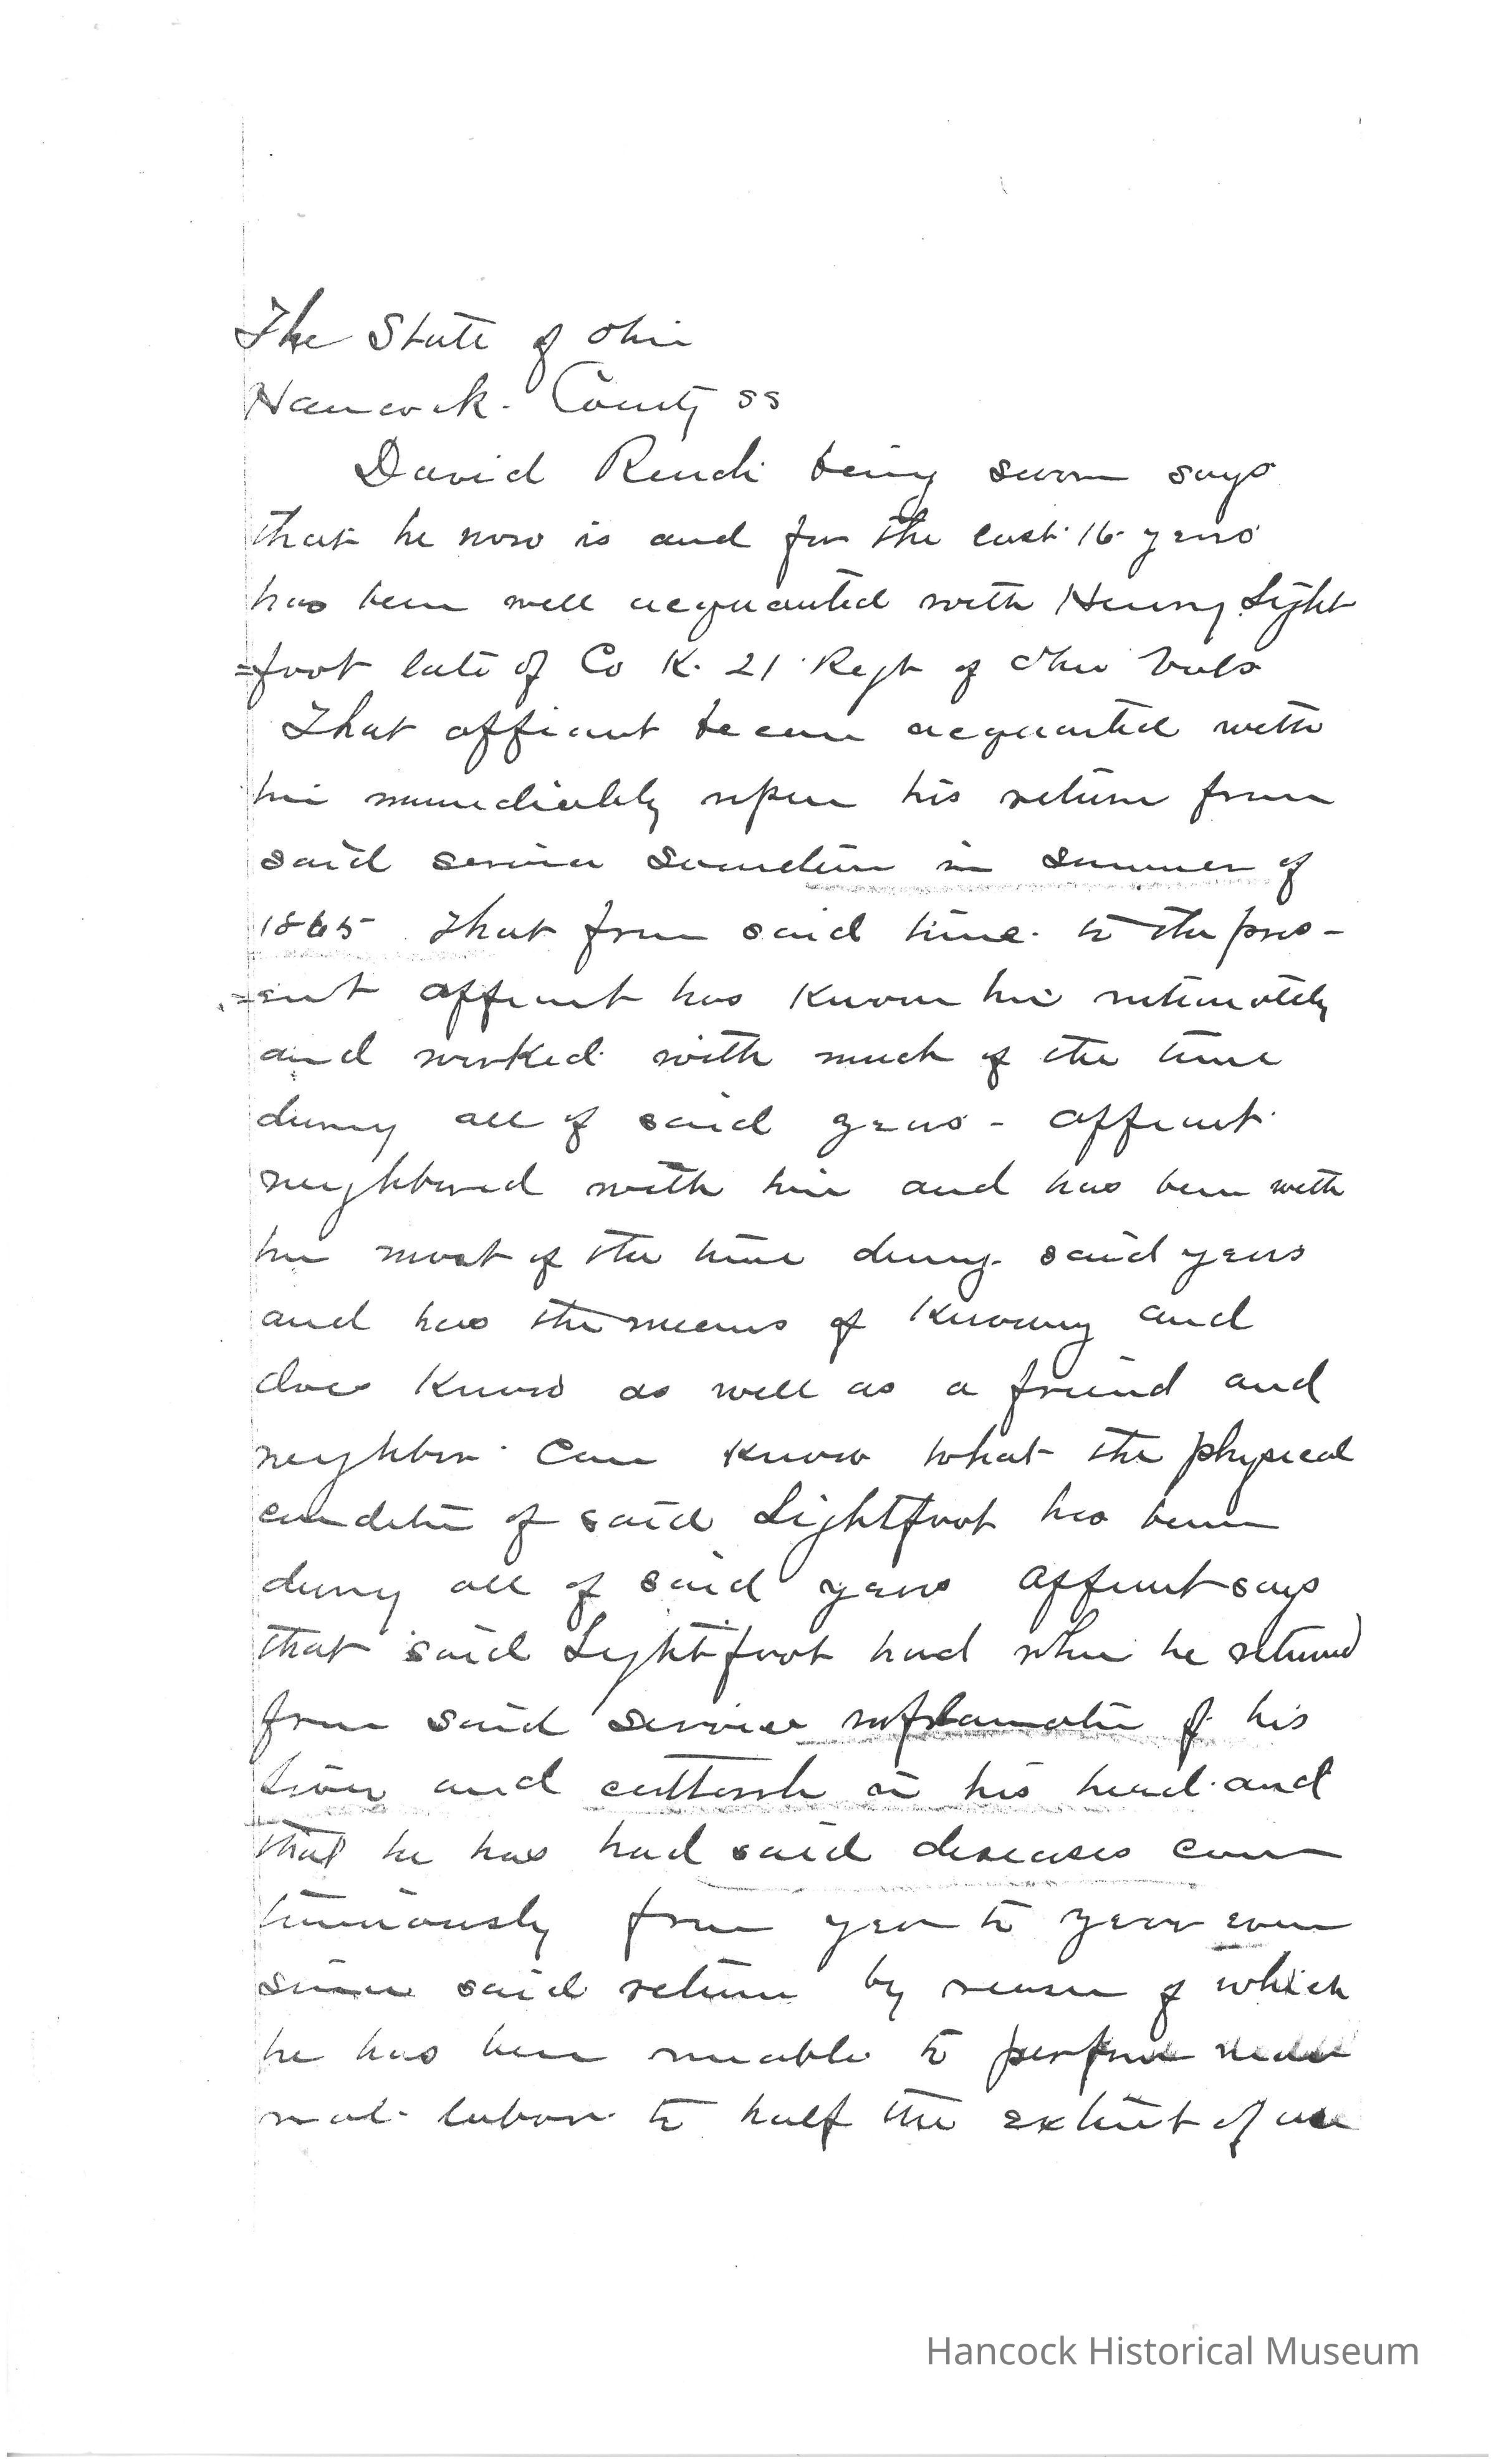 The State of Ohio
Hancock. County ss
David Rendi being sworn says
that he now is and for the last 16 years
has been well acquanted with Henry Light
=foot late of Co K. 21 Regt of Ohio Vols
That affiant became acquanted with
him immediately upon his return from
said service sometime in summer of
1865 That from said time to the pres-
=ent affiant has known him intimately
and worked with much of the time
during all of said years - affiant
neighbored with him and has been with
him most of the time during said years
and has the means of knowing and
does know as well as a friend and
neighbor can know what the physical
condition of said Lightfoot has been
during all of said years affiant says
that said Lightfoot had when he returned
from said service inflamation of his
liver and cattarrh in his head and
that he has had said diseases con
tinuously from year to year ever
since said return by reason of which
he has been unable to perform
labor to half the extent of an
Hancock Historical Museum